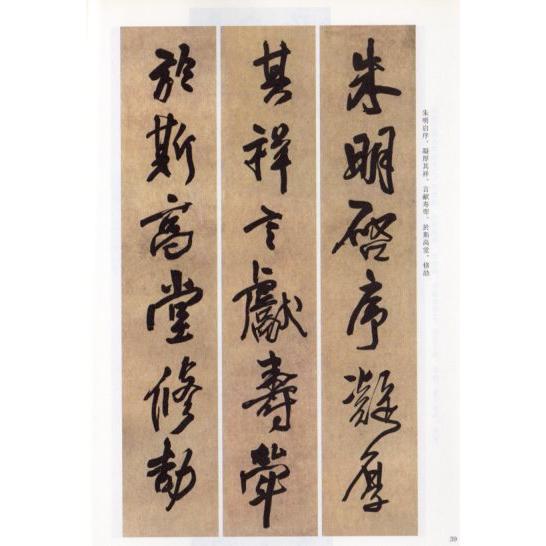 朱明啓序凝厚
其祥言獻壽
於斯高堂修劼
朱明启序，凝厚其祥，言献寿
於斯高堂，修劼
39